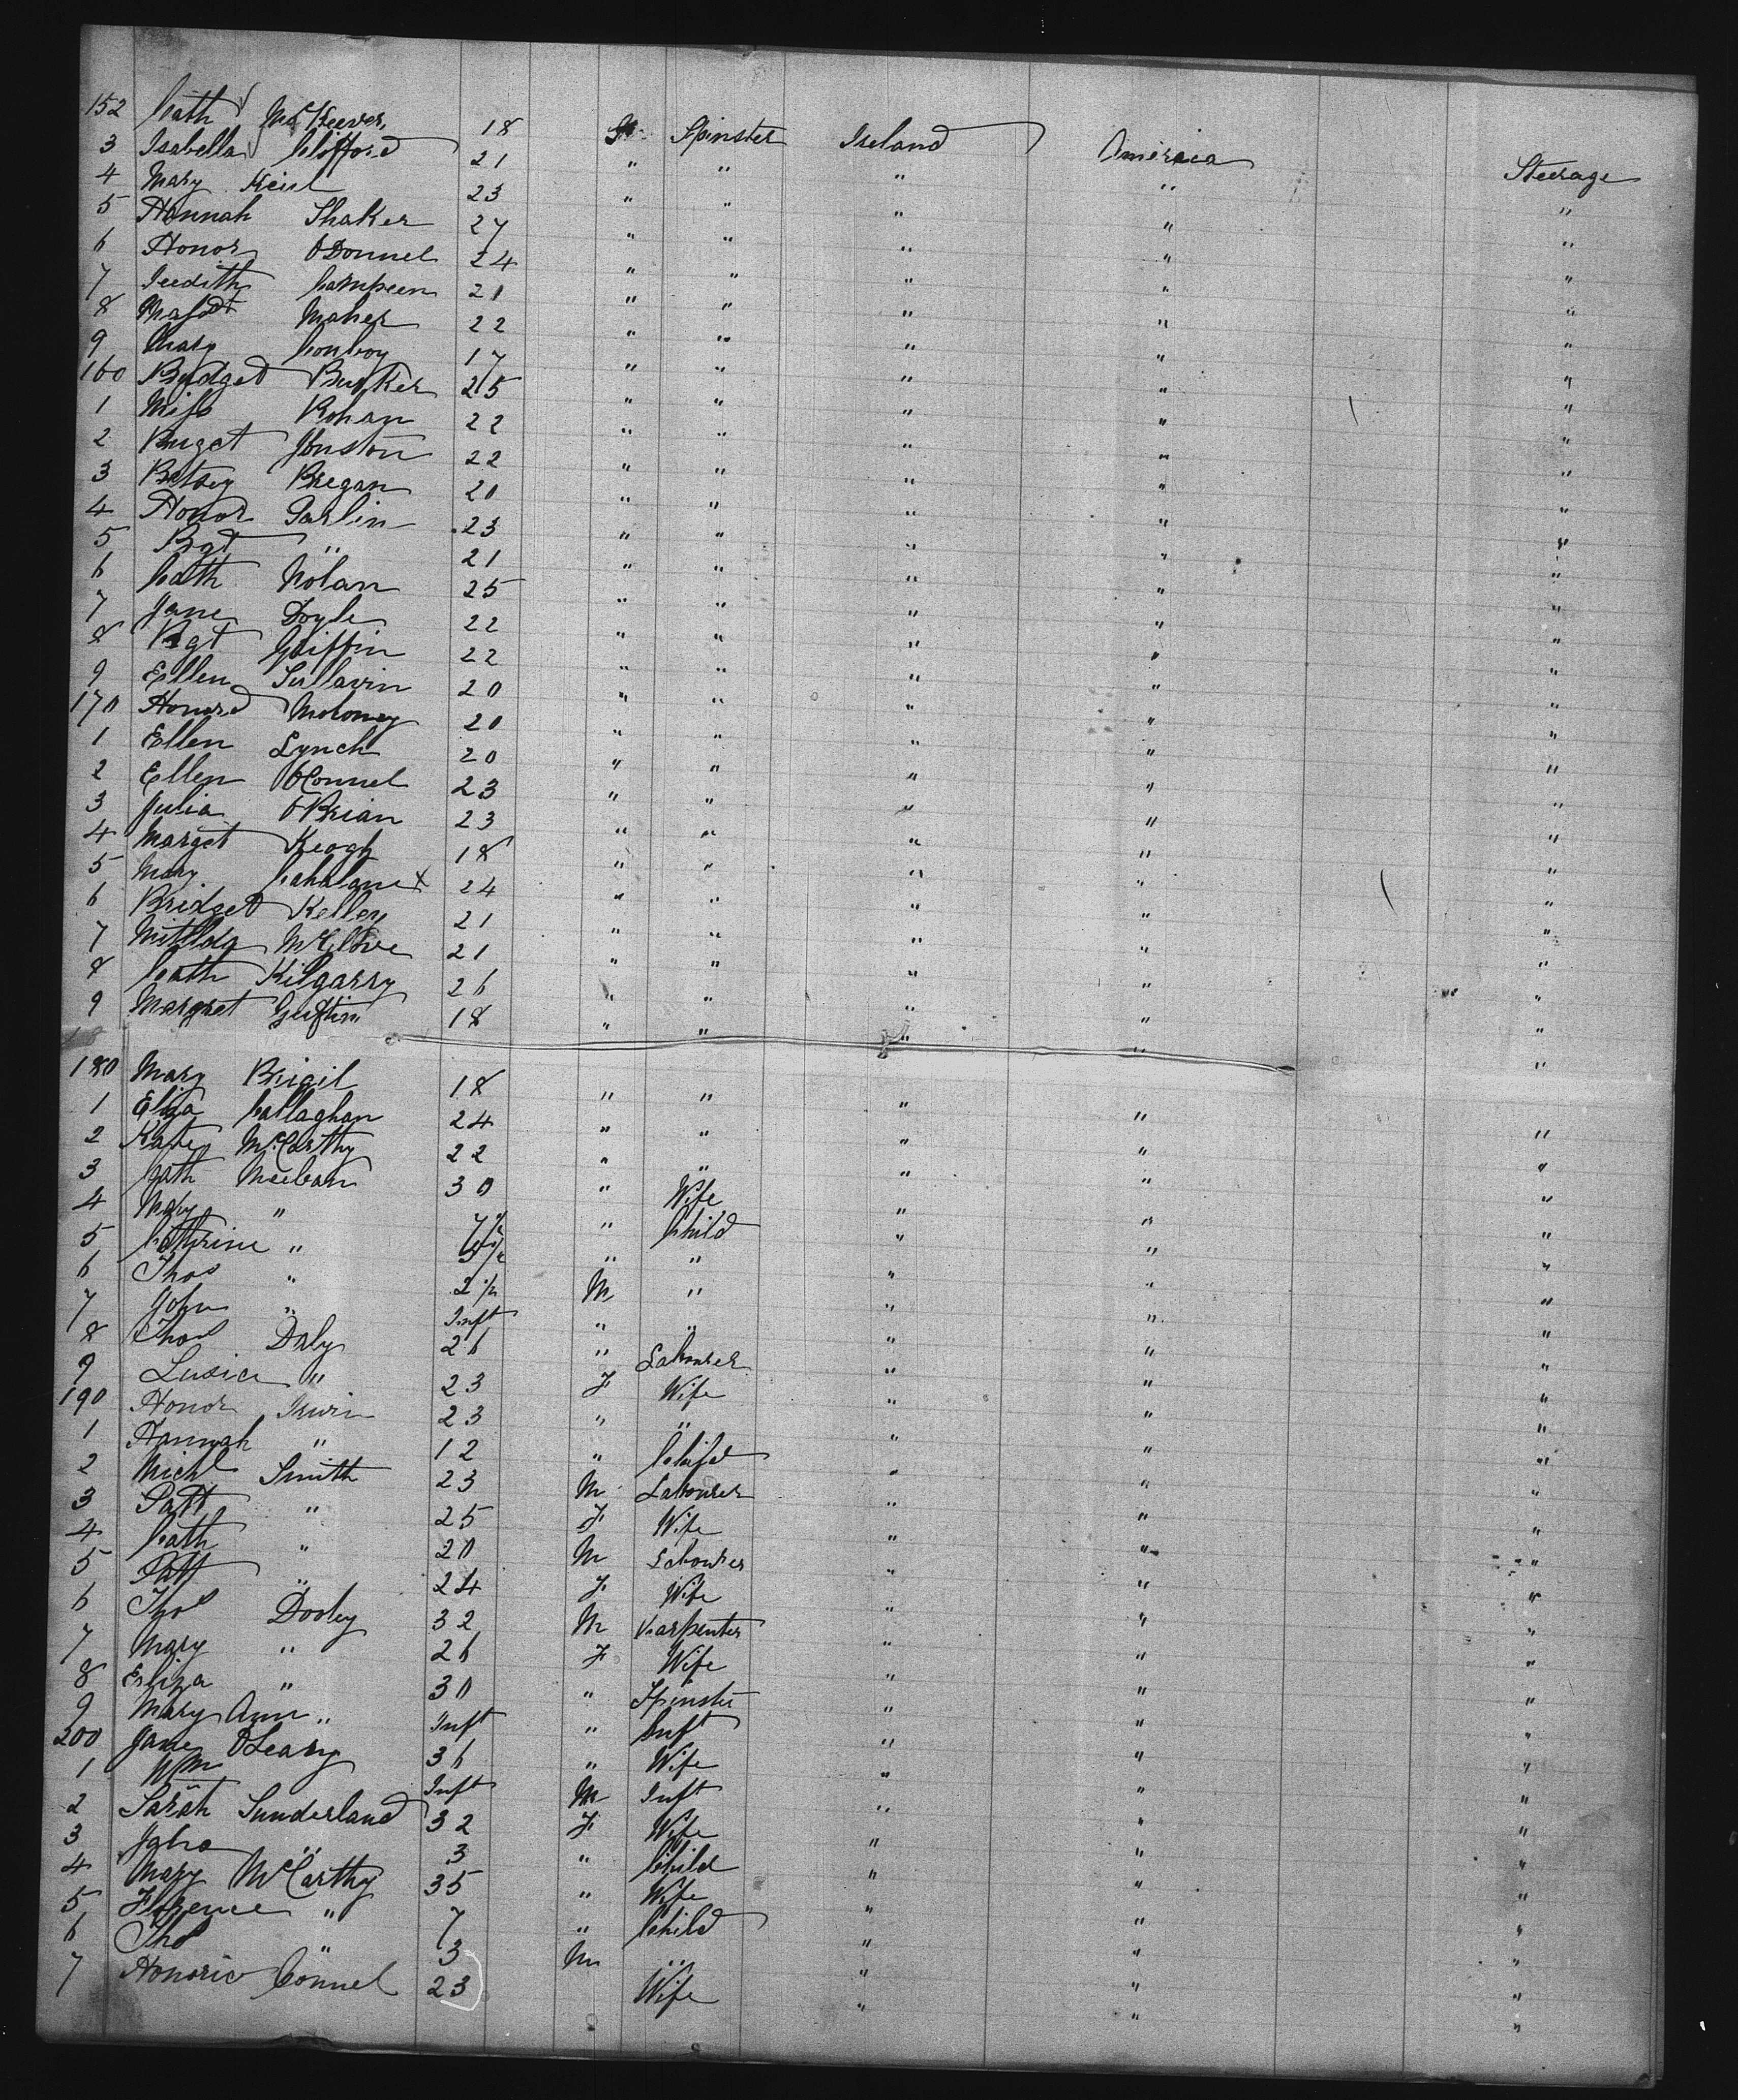 152 Cath McKeever 18 F Spinster Ireland America Steerage
3 Isabella Clifford 21 " " " " "
4 Mary 23 " " " " "
5 Hannah Shaker 27 " " " " "
6 Honor O'Donnel 24 " " " " "
7 Jeedith Campeen 21 " " " " "
8 Magdt Maher 22 " " " " "
9 Mary Conboy 17 " " " " "
160 Bridget Burker 25 " " " " "
1 Miss Rohan 22 " " " " "
2 Buget Jonston 22 " " " " "
3 Betsey Bregan 20 " " " " "
4 Honor Garlin 23 " " " " "
5 Bgt " 21 " " " " "
6 Cath Nolan 25 " " " " "
7 Jane Doyle 22 " " " " "
8 Bgt Griffin 22 " " " " "
9 Ellen Sullavin 20 " " " " "
170 Honord Moroney 20 " " " " "
1 Ellen Lynch 20 " " " " "
2 Ellen OConnel 23 " " " " "
3 Julia OBrian 23 " " " " "
4 Marget Keogh 18 " " " " "
5 Mary Cahalane x 24 " " " " "
6 Bridget Kelley 21 " " " " "
7 Mitilda 21 " " " " "
8 Cath Kilgarry 26 " " " " "
9 Margret Griffin 18 " " " " "
180 Mary 18 " " " " "
1 Eliza Callaghan 24 " " " " "
2 Kate McCarthy 22 " " " " "
3 Cath 30 " Wife " " "
4 Mary " 7 " Child " " "
5 Cathrine " " " " " "
6 Thos " 2 1/2 M " " " "
7 John " Inft " " " " "
8 Thos Daly 26 " Labourer " " "
9 Lusia " 23 F Wife " " "
190 Honor Irwin 23 " " " " "
1 Hannah " 12 " Child " " "
2 Michl Smith 23 M Labourer " " "
3 Patt " 25 F Wife " " "
4 Cath " 20 M Labourer " " "
5 Patt " 24 F Wife " " "
6 Thos Dooley 32 M Karpenter " " "
7 Mary " 26 F Wife " " "
8 Eliza " 30 " Spinster " " "
9 Mary Ann " Inft " Inft " " "
200 Jane OLeary 36 " Wife " " "
1 Wm " Inft M Inft " " "
2 Sarah Sunderland 32 F Wife " " "
3 " 3 " Child " " "
4 Mary McCarthy 35 " Wife " " "
5 Florence " 7 " Child " " "
6 Tho " 3 M " " " "
7 Honoria Connel 23 Wife " " "